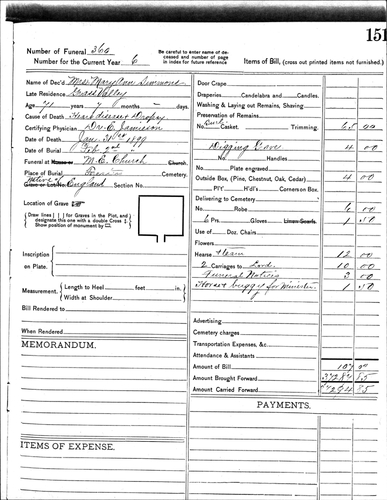 151
Number of Funeral 360
Number for the Current Year 6
Be careful to enter name of deceased and number of page in index for future reference
Items of Bill, (cross out printed items not furnished.)
Name of Dec'd Mrs. Mary Ann Simmons
Late Residence Grass Valley
Age 71 years 7 months days
Cause of Death Heart disease Dropsy
Certifying Physician Dr. C. Jameson
Date of Death Jan. 31st 1899
Date of Burial Feb. 2nd "
Funeral at House or M. E. Church Church.
Place of Burial Cemetery.
Native of England
Grave or Lot No. Section No.
Location of Grave
Draw lines ( ) for Graves in the Plot, and designate this one with a double Cross
Show position of monument by
Inscription
on Plate.
Measurement. Length to Heel feet in.
Width at Shoulder
Bill Rendered to
When Rendered
MEMORANDUM.
ITEMS OF EXPENSE.
Door Crape
Draperies Candelabra and Candles.
Washing & Laying out Remains, Shaving
Preservation of Remains
No. Casket. Trimming. 65 00
Digging Grave 4 00
No. Handles
Plate engraved
Outside Box, (Pine, Chestnut, Oak, Cedar) 4 00
Pl't H'd's Corners on Box.
Delivering to Cemetery
No. Robe 6 00
6 Prs. Gloves Linen Scarfs. 1 50
Use of Doz. Chairs
Flowers
Hearse & team 12 00
2 Carriages to 10 00
Funeral Notices
Horse & buggy for Minister 1 50
Advertising
Cemetery charges
Transportation Expenses, &c.
Attendance & Assistants
Amount of Bill 107 00
Amount Brought Forward
Amount Carried Forward
PAYMENTS.